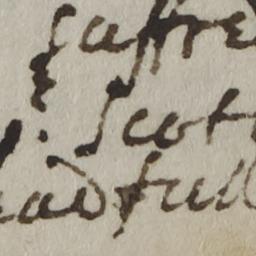 saffre
Scot
eadfull